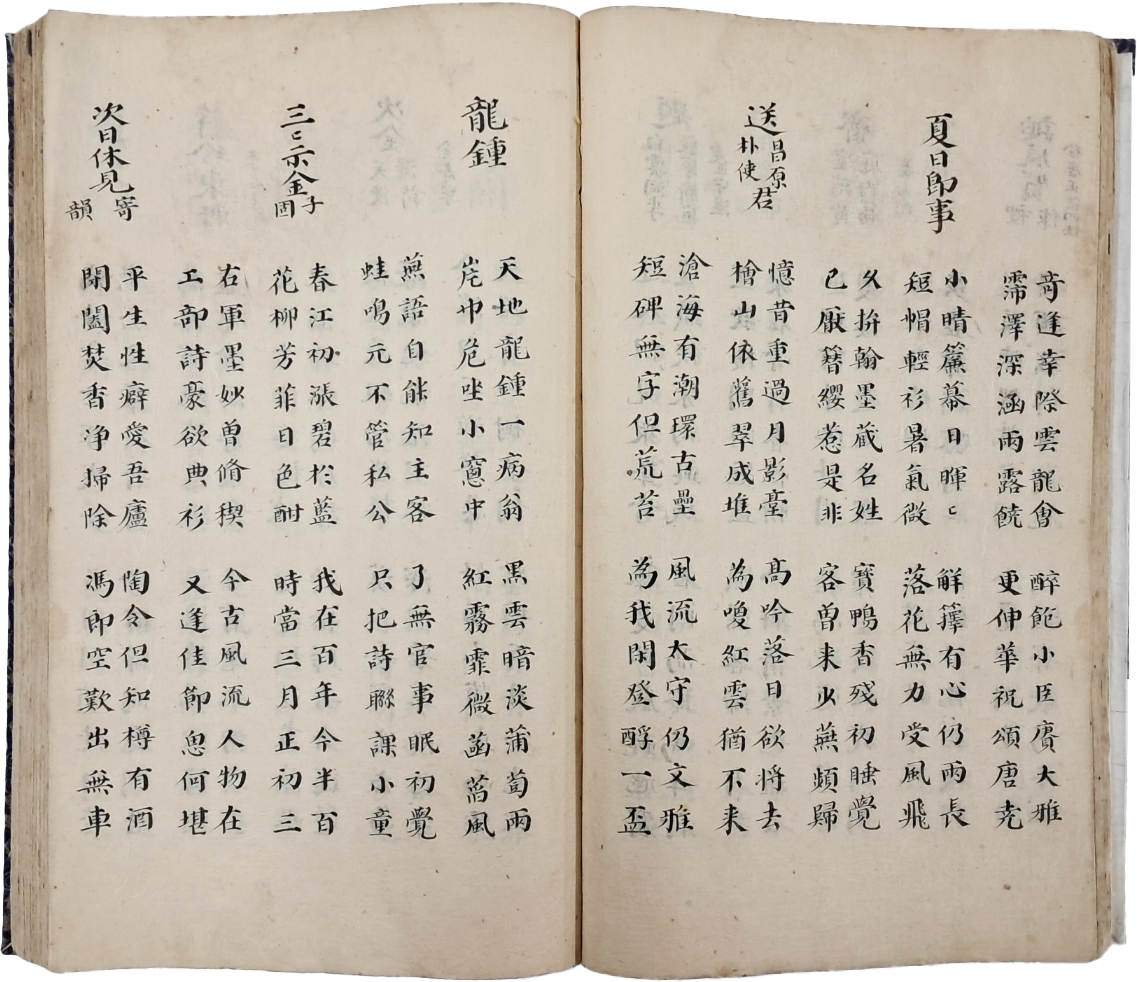 奇逢幸際雲龍會
霈澤深涵雨露饒
醉飽小臣賡大雅
更伸華祝頌唐尭
夏日即事
小晴簾幕日暉〻
短帽輕衫暑氣微
解籜有心仍雨長
落花無力受風飛
久拚翰墨蔵名姓
已厭簪纓惹是非
寶鴨香殘初睡覺
客曽来少燕頻歸
送昌原朴使君
憶昔重過月影臺
檜山依舊翠成堆
髙吟落日欲将去
為嗄紅雲猶不来
滄海有潮環古壘
短碑無字但荒苔
風流太守仍文雅
為我閑登酹一盃
龍鍾
天地龍鍾一病翁
岸巾危坐小窓中
黒雲暗淡蒲萄雨
紅霧霏微菡萏風
燕語自能知主客
蛙鳴元不管私公
了無官事眠初覺
只把詩聯課小童
三〻示金子固
春江初漲碧於藍
花柳芳菲日色酣
我在百年今半百
時當三月正初三
右軍墨妙曽脩禊
工部詩豪欲典衫
今古風流人物在
又逢佳節思何堪
次日休見寄韻
平生性癖愛吾廬
閉閤焚香净掃除
陶令但知樽有酒
馮郎空歎出無車